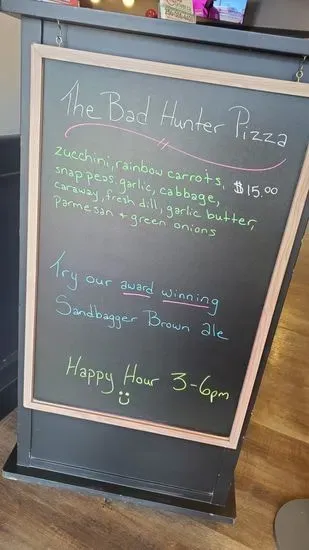 The Bad Hunter Pizza
zucchini, rainbow carrots, $15.00
snap peas, garlic, cabbage,
caraway, fresh dill, garlic butter,
parmesan + green onions
Try our award winning
Sandbagger Brown ale
Happy Hour 3-6pm